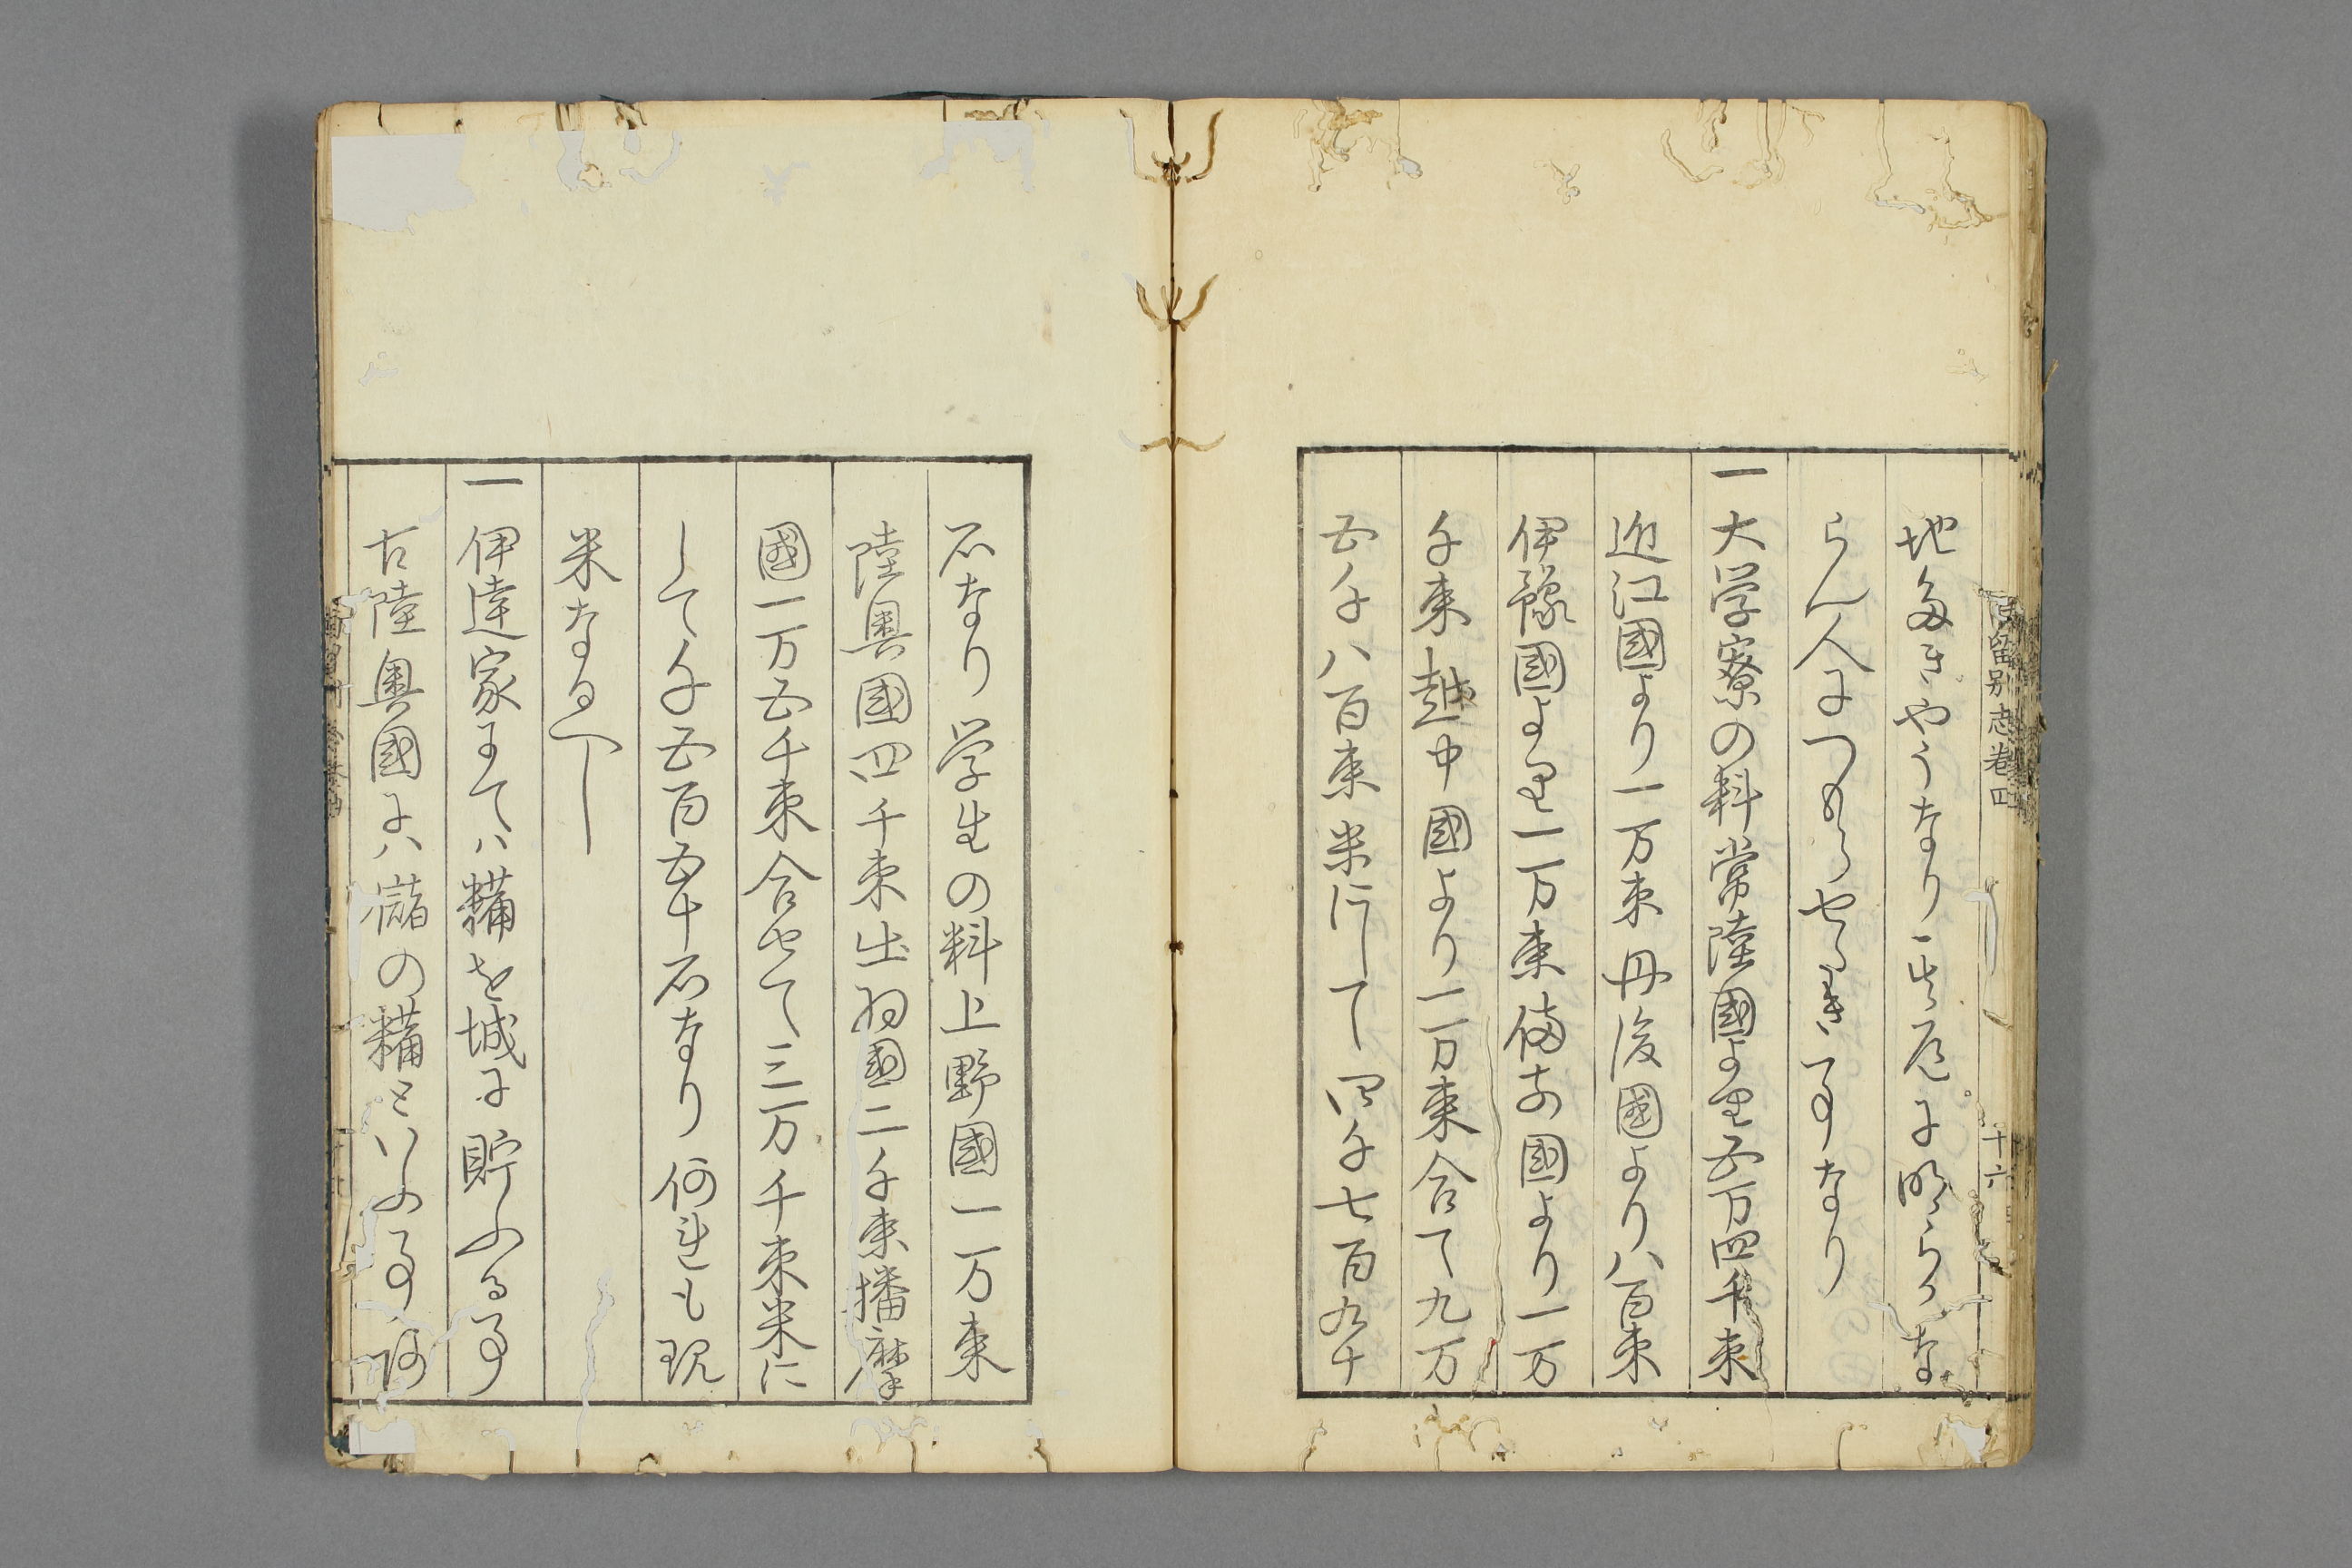 地多きやうなり其虚に明らかな
らん人につめらせらるき事なり
一大学寮の料常陸國より五万四千束
近江國より一万束丹後國より八百束
伊豫國より一万束備前國より一万
千束越中國より一万束合て九万
五千八百束米にして四千七百九十
石なり学生の料上野國一万束
陸奥國四千束出羽國二千束播摩
國一万五千束合せて三万千束米に
して千五百五十石なり何連も現
米なるへし
一伊達家にてハ糒を城に貯ふる事
古陸奥國にハ儲の糒といふ事
南留別志巻四
十六